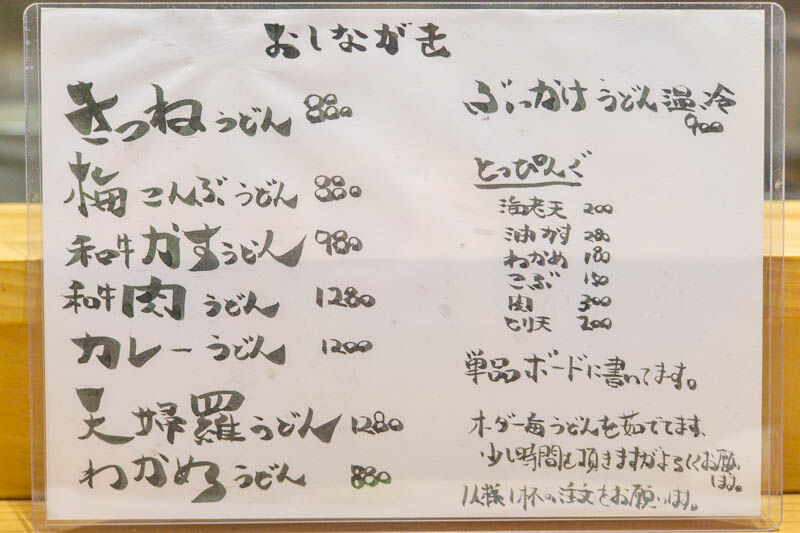 おしながき
きつねうどん 880
梅こんぶうどん 880
和牛かすうどん 980
和牛肉うどん 1280
カレーうどん 1200
天婦羅うどん 1280
わかめうどん 880
ぶっかけうどん温、冷
900
とっぴんぐ
海老天 200
油かす 280
わかめ 180
こぶ 150
肉 300
とり天 200
単品ボードに書いてます。
オーダー毎うどんを茹でてます、
少し時間を頂きますがよろしくお願い
します。
1人様1杯の注文をお願いします。